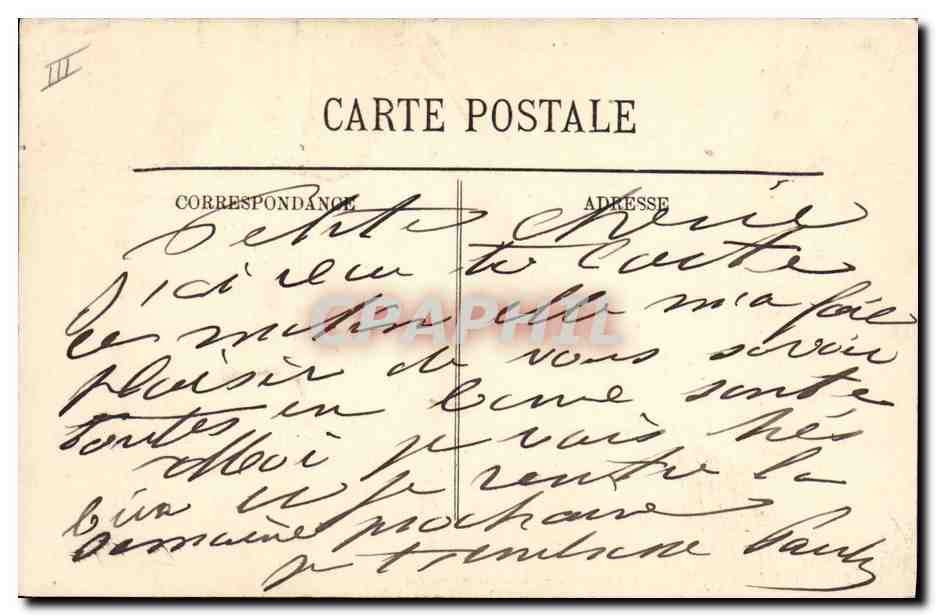 III
CARTE POSTALE
CORRESPONDANCE
ADRESSE
Petite cherie
J'ai recu ta carte
ce matin elle m'a fait
plaisir de vous savoir
toutes en bonne sante
Moi je vais très
bien je rentre la
semaine prochaine
je t'embrasse
CPAPHIL